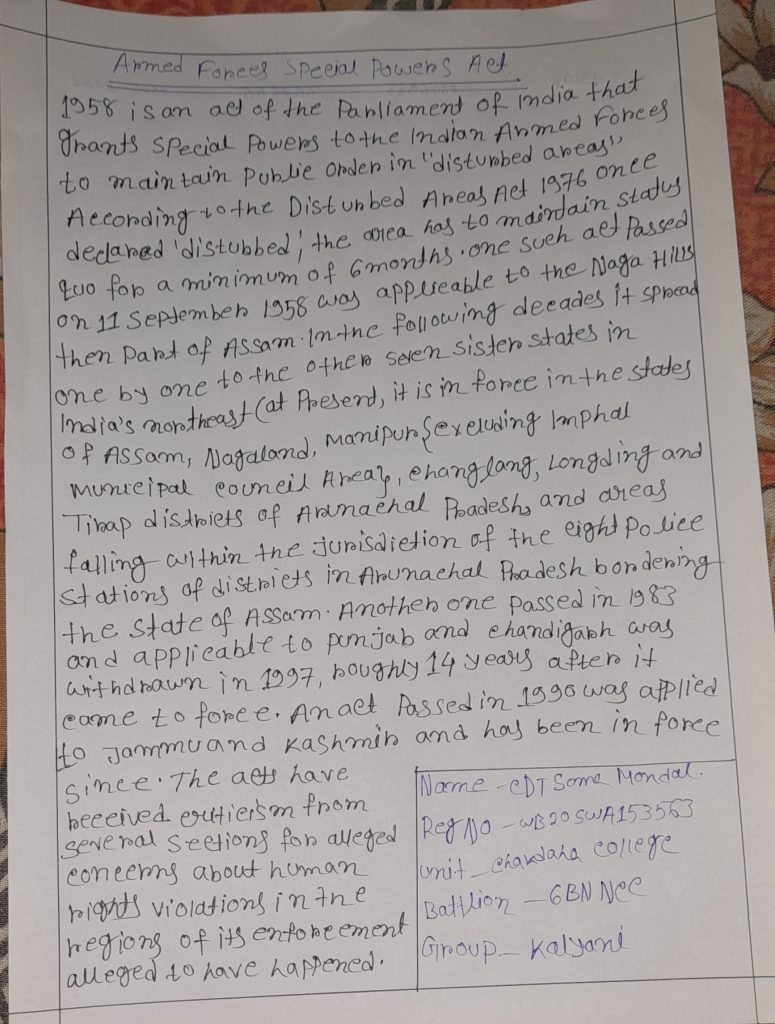 Armed Forces Special Powers Act.
1958 is an act of the Parliament of India that
grants special Powers to the Indian Armed Forces
to maintain Public Order in "disturbed areas",
According to the Disturbed Areas Act 1976 once
declared 'distubbed', the area has to maintain status
quo for a minimum of 6 months. one such act Passed
on 11 September 1958 was applicable to the Naga Hills
then Part of Assam. In the following decades it spread
one by one to the other seven sister states in
India's northeast (at Present, it is in force in the states
of Assam, Nagaland, Manipur {excluding Imphal
Municipal council Area}, changlang, Longding and
Tirap districts of Arunachal Pradesh, and areas
falling within the jurisdiction of the eight Police
stations of districts in Arunachal Pradesh bordering
the state of Assam. Another one passed in 1983
and applicable to punjab and chandigarh was
withdrawn in 1997, roughly 14 years after it
came to force. An act Passed in 1990 was applied
to Jammu and Kashmir and has been in force
since. The acts have
received criticism from
several sections for alleged
concerns about human
rights violations in the
regions of its enforcement
alleged to have happened.
Name - CDT Soma Mondal.
Reg No - WB20SWA153563
unit - chakdaha college
Battlion - 6BN NCC
Group - Kalyani